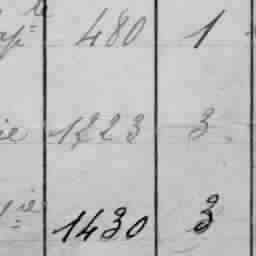 480 1
ie 1223 3
ie 1430 3